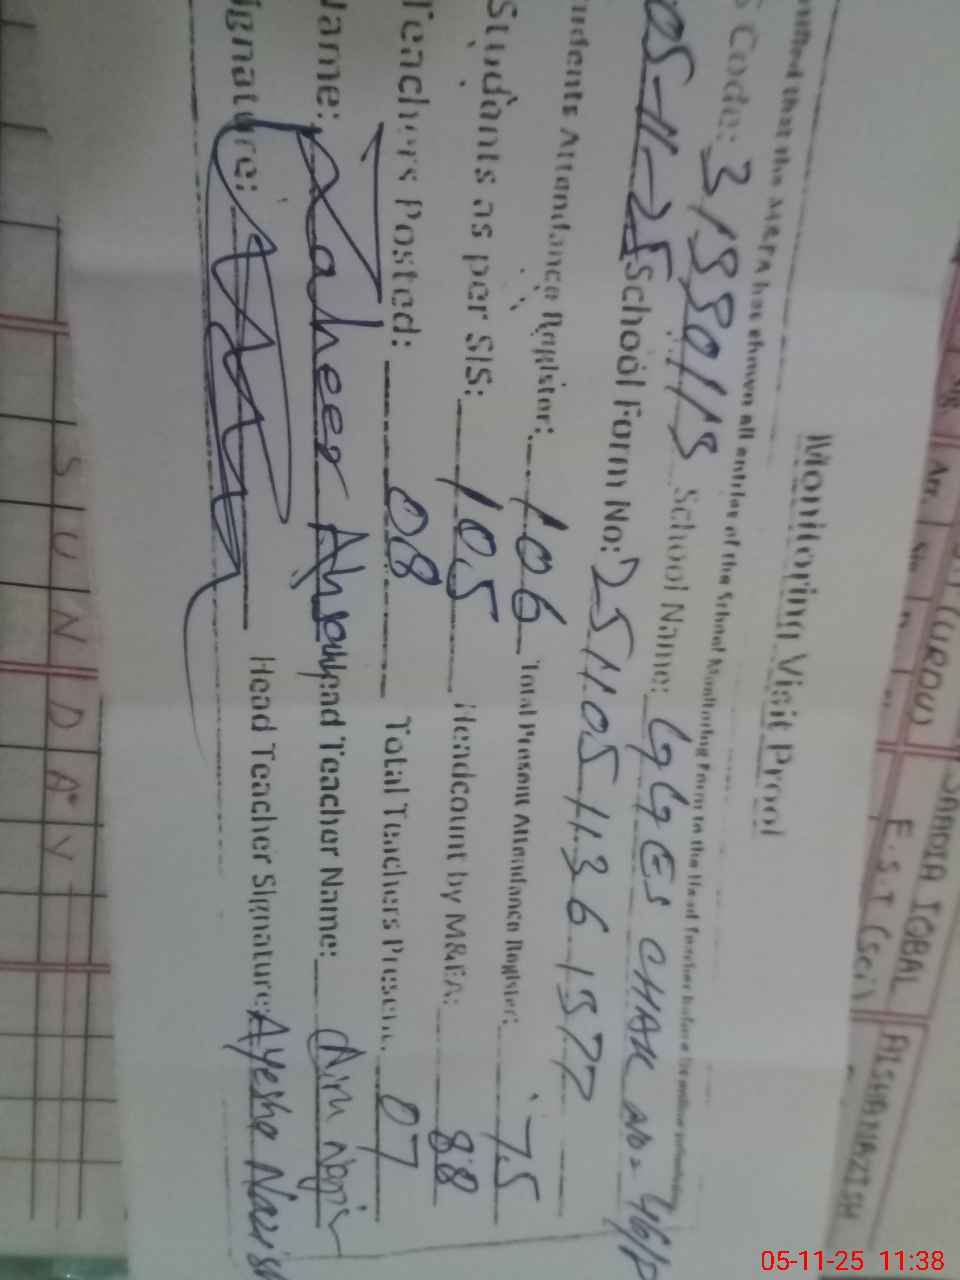 Monitoring Visit Proof
that the M&EA has shown all entries of the School Monitoring Form to the Head Teacher before
Code: 31330113 School Name: GGES CHAK NO. 46/P
05-11-25 School Form No: 25110511361577
Students Attendance Register: 106 Total Present Attendance Register: 75
Students as per SIS: 105 Headcount by M&EA: 88
Teachers Posted: 08 Total Teachers Present: 07
Name: Zaheer Ahmad Head Teacher Name:
Signature: Head Teacher Signature: Ayesha
SUNDAY
(URDU)
SAADIA IQBAL
E.S.T (Sci)
AISHA NAZISH
Sig.
Arr.
05-11-25 11:38